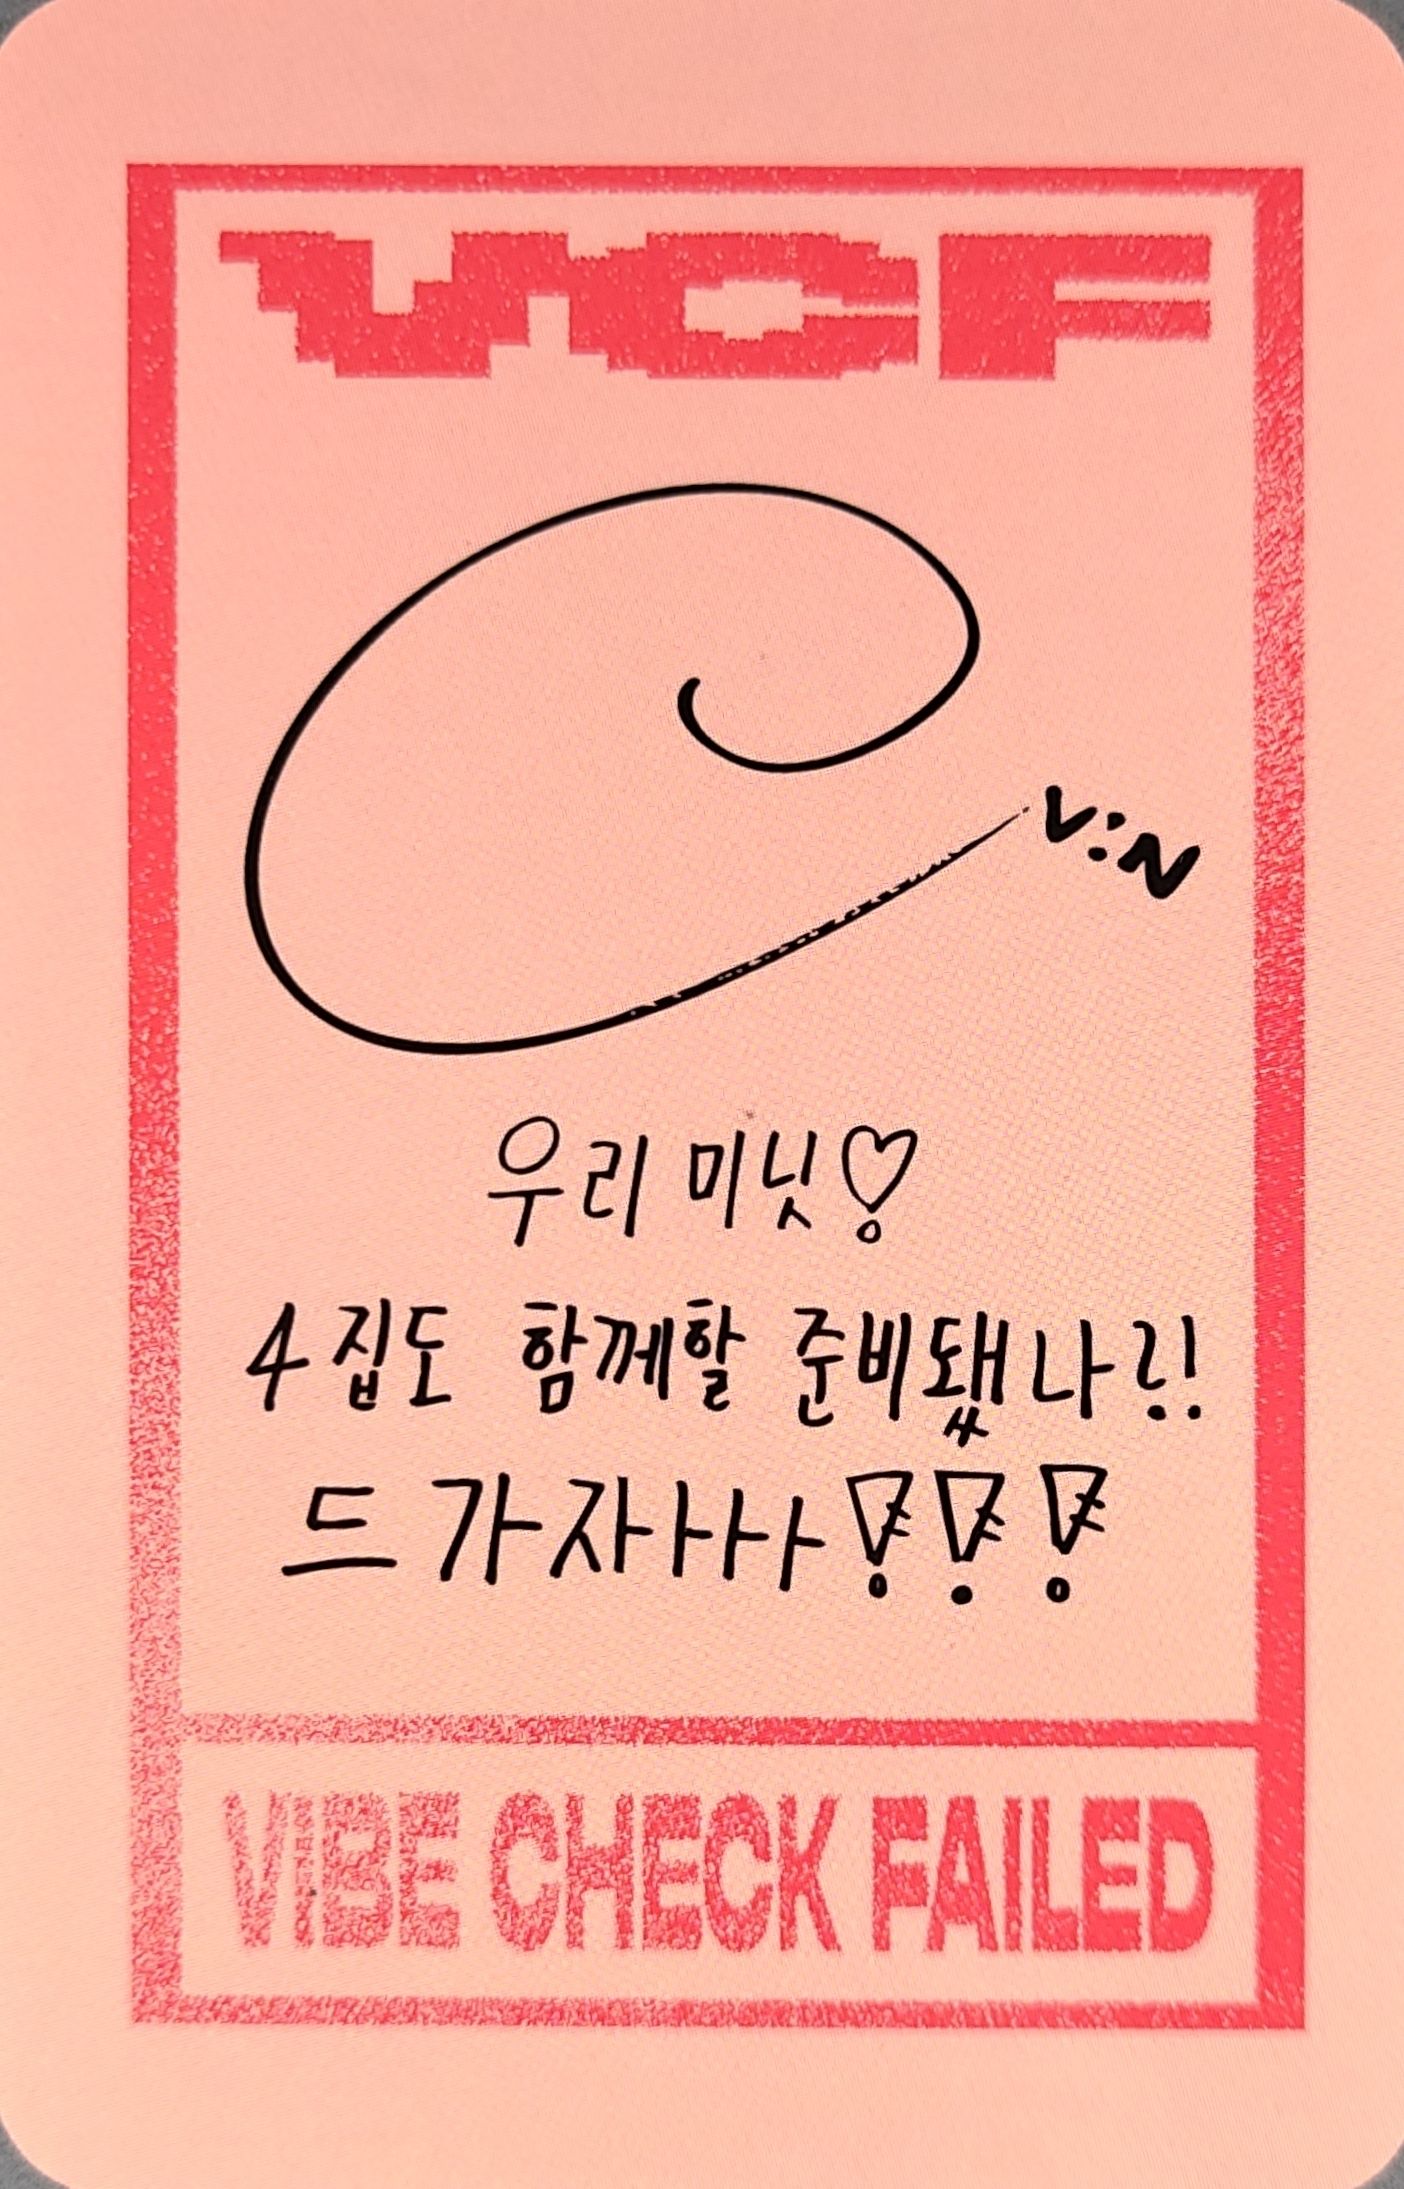 VCF
V:N
우리 미닛♡
4집도 함께할 준비됐나?!
드가자ㅏㅏㅏ!!!
VIBE CHECK FAILED